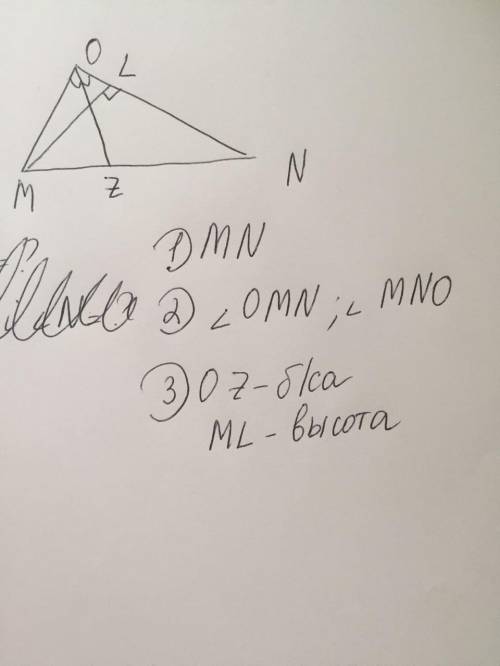 O
L
M
Z
N
1) MN
2) ∠OMN; ∠MNO
3) OZ - б/са
ML - высота